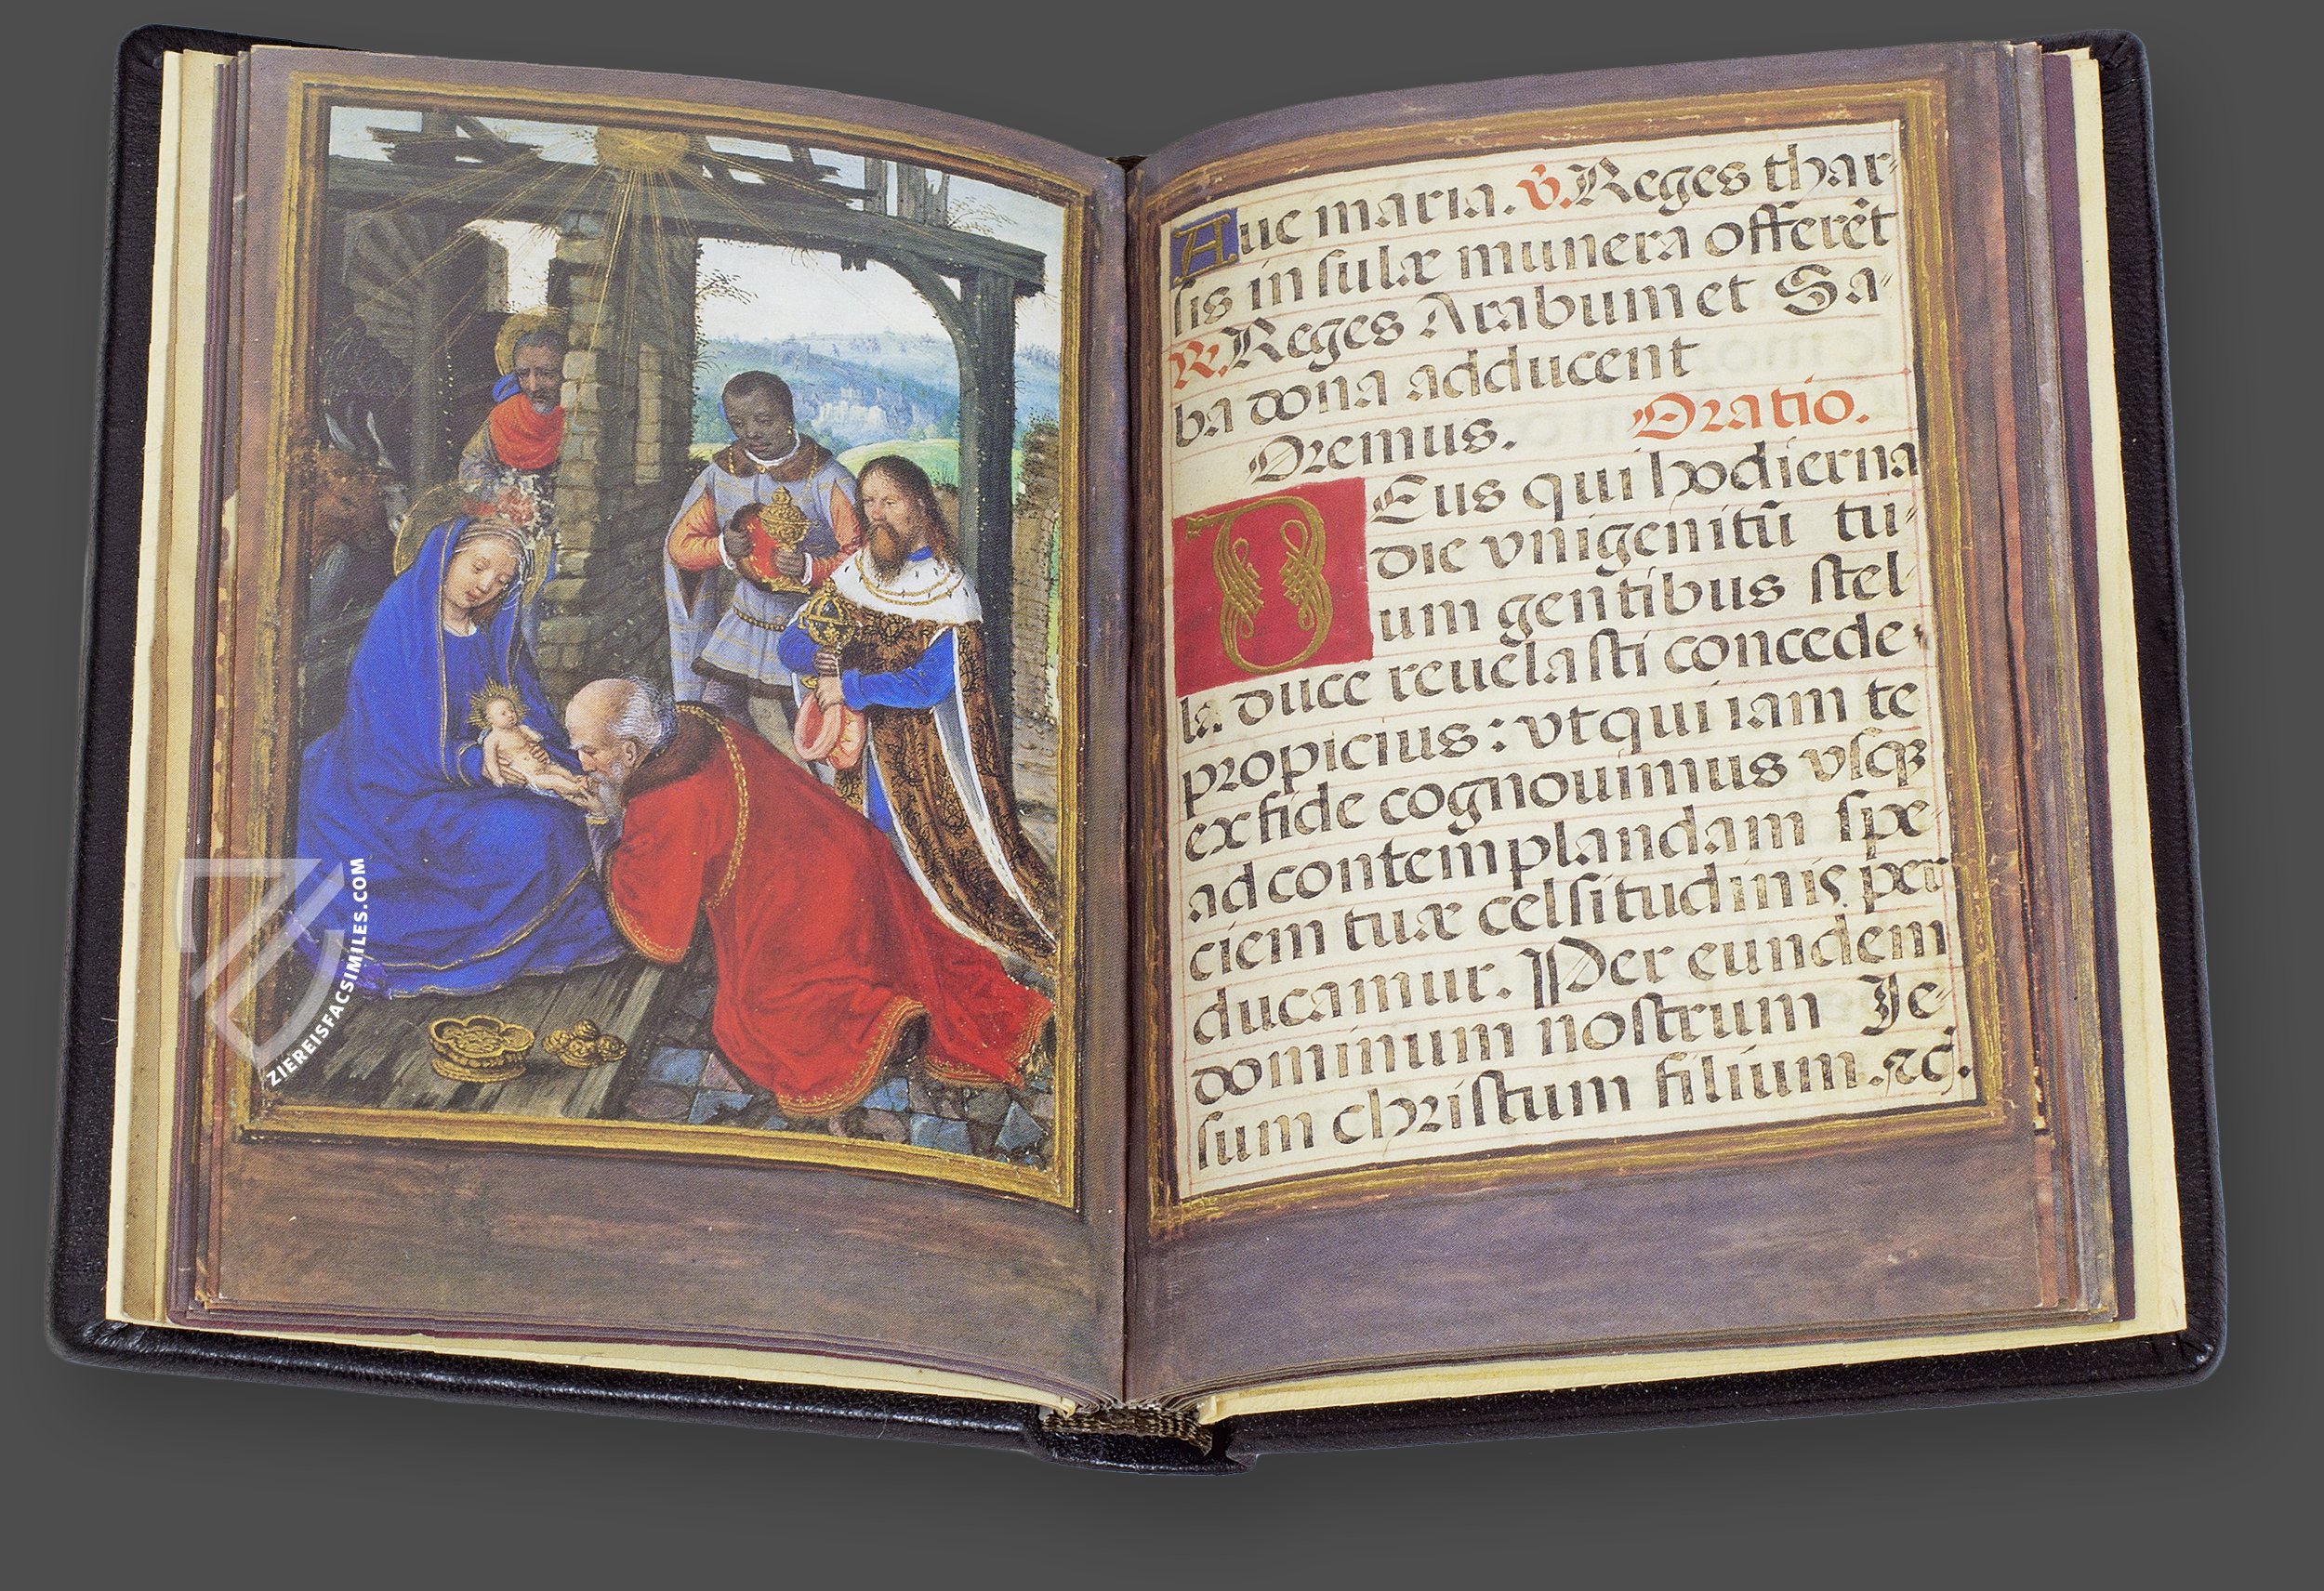 ZIEREISFACSIMILES.COM
Aue maria. V̄. Reges thar-
sis insulæ munera offerēt
R. Reges Arabum et Sa-
ba dona adducent
Oremus. Oratio.
DEus qui hodierna
die vnigenitū tu-
um gentibus stel-
la duce reuelasti concede
propicius: vt qui iam te
ex fide cognouimus vsq;
ad contemplandam spe-
ciem tuæ celsitudinis per
ducamur. Per eundem
dominum nostrum Je-
sum christum filium. ⁊c̄.